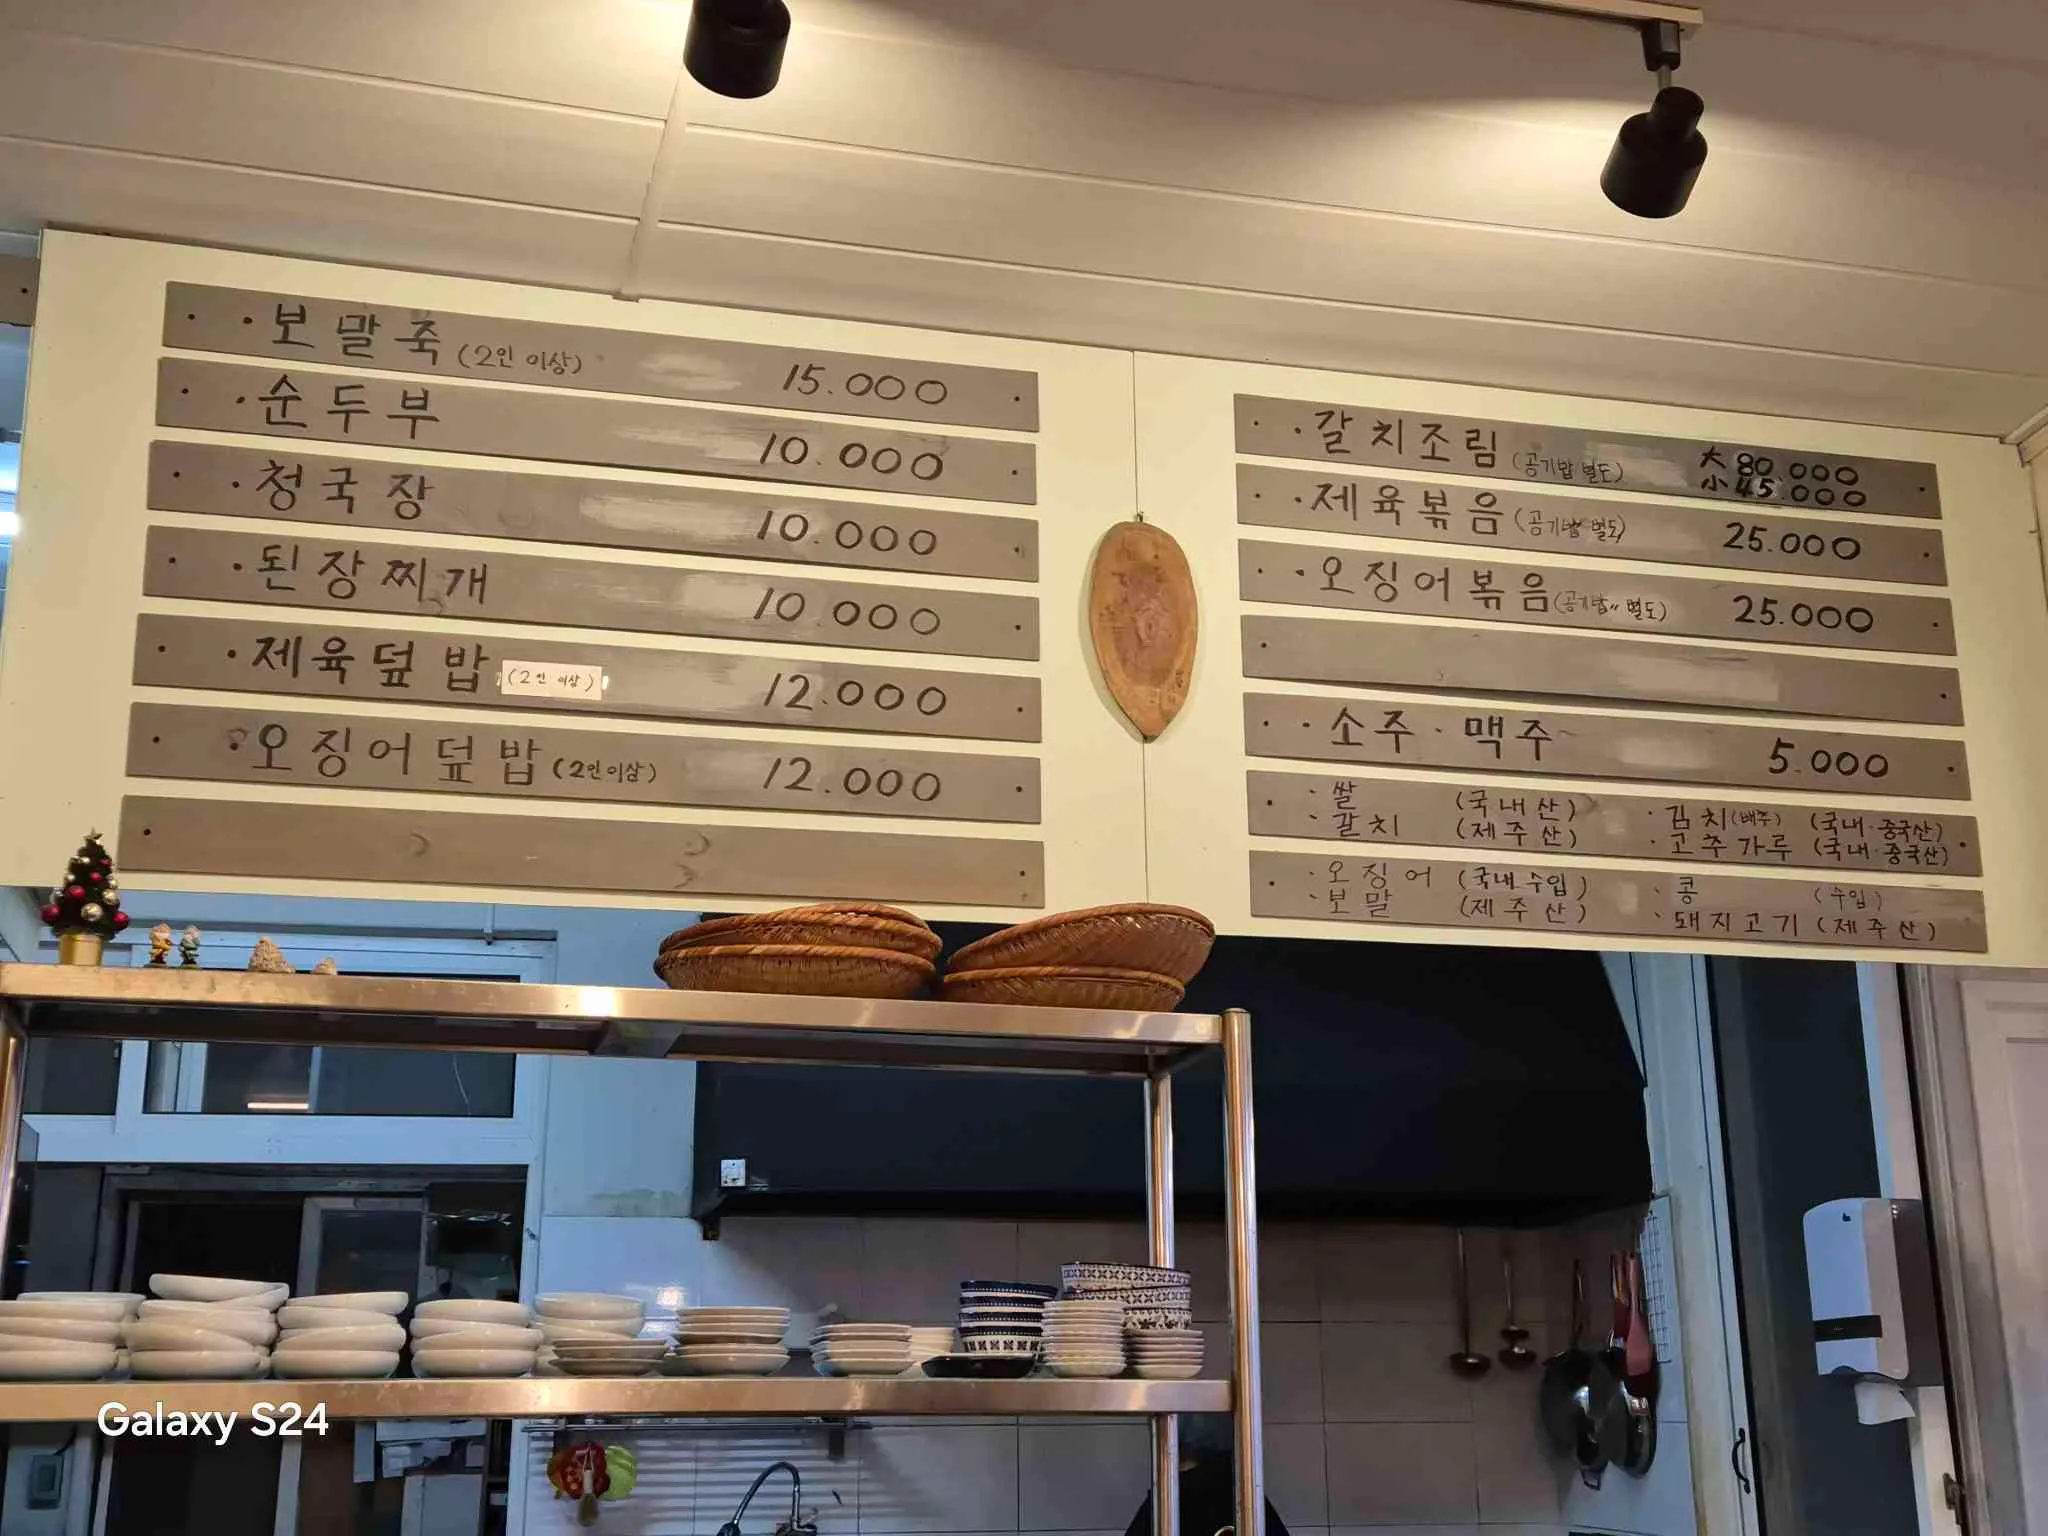 · 보말죽 (2인 이상) 15.000
· 순두부 10.000
· 청국장 10.000
· 된장찌개 10.000
· 제육덮밥 (2인 이상) 12.000
· 오징어덮밥 (2인이상) 12.000
· 갈치조림 (공기밥 별도) 大 80.000
小 45.000
· 제육볶음 (공기밥 별도) 25.000
· 오징어볶음 (공기밥 별도) 25.000
· 소주 · 맥주 5.000
· 쌀 (국내산) · 김치(배추) (국내·중국산)
· 갈치 (제주산) · 고추가루 (국내·중국산)
· 오징어 (국내수입) · 콩 (수입)
· 보말 (제주산) · 돼지고기 (제주산)
Galaxy S24